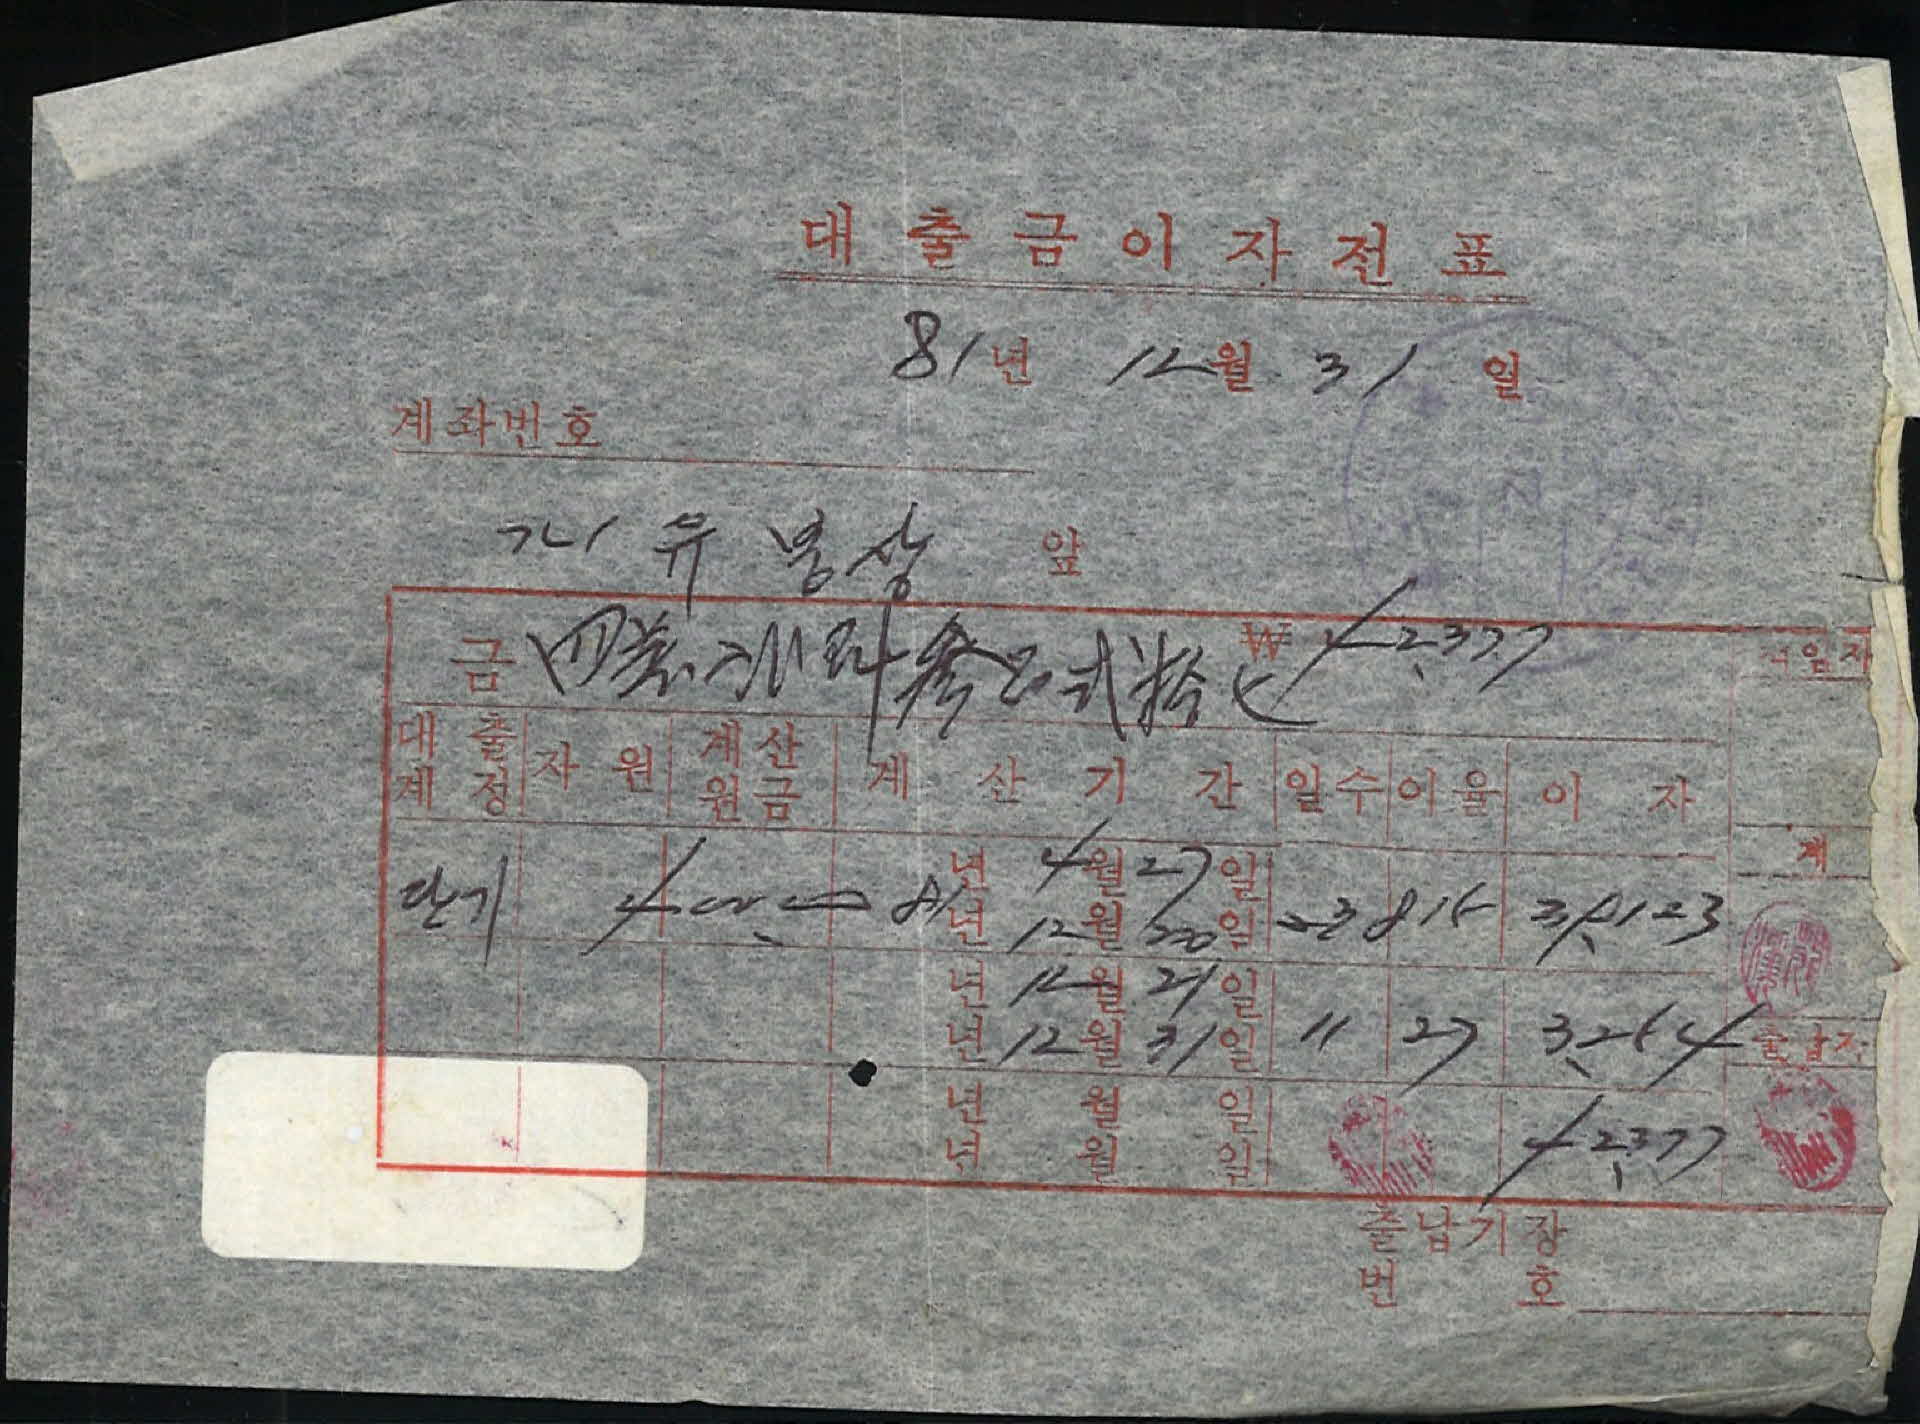 대출금이자전표
81년 12월 31일
계좌번호
유병상 앞
금 四萬 参 弐拾 ₩42,377
책임자
대출계정 자원 계산원금 계산기간 일수 이율 이자
계
단기 81년 4월 27일
년 12월 20일 39,123
년 12월 21일
년 12월 31일 11 27 3,264
출납자
년 월 일 42,377
년 월 일
출납기장
번호